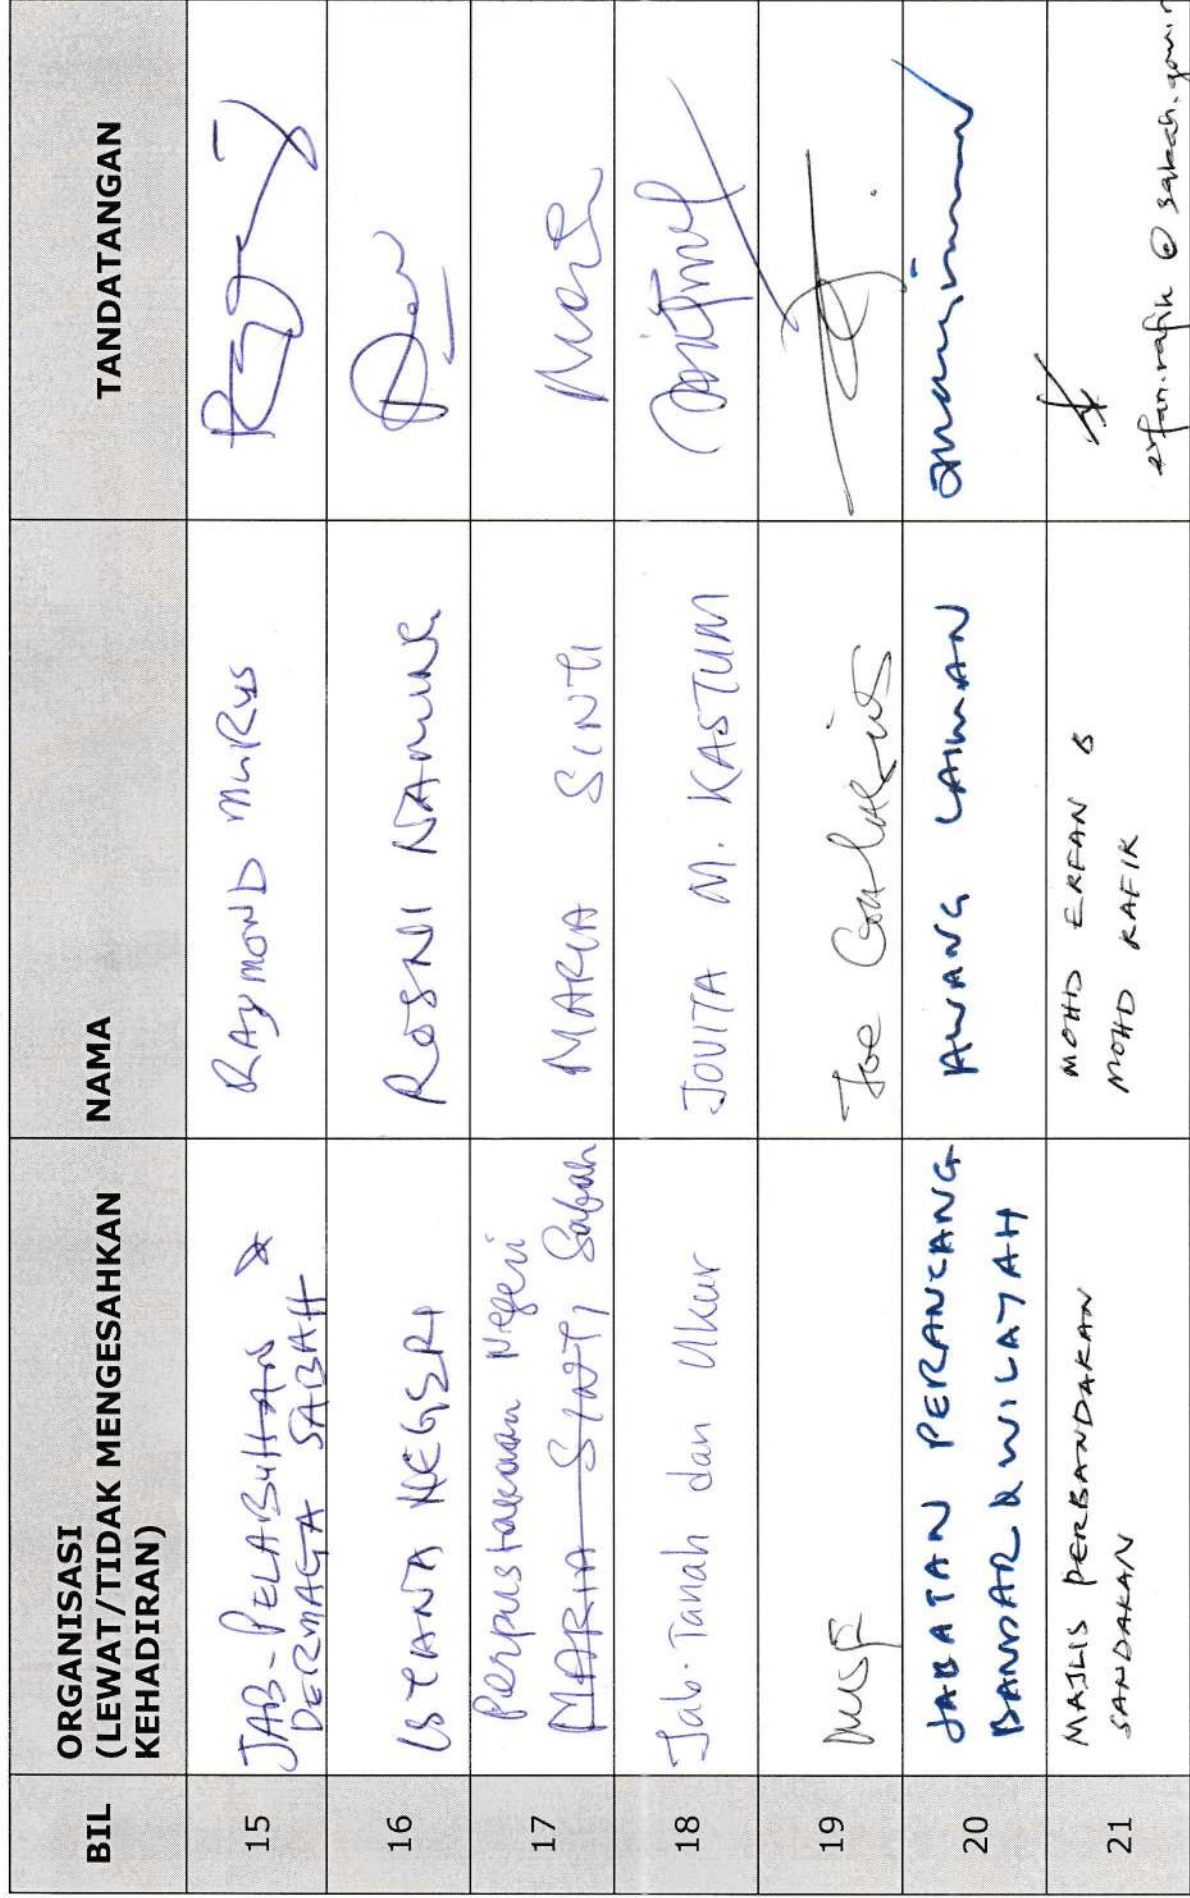 BIL
ORGANISASI
(LEWAT/TIDAK MENGESAHKAN
KEHADIRAN)
NAMA
TANDATANGAN
15
JAB-PELABUHAN &
DERMAGA SABAH
RAYMOND MURUS
16
ISTANA NEGERI
ROSNI
17
Perpustakaan Negeri
MARIA SINTI Sabah
MARIA SINTI
18
Jab. Tanah dan Ukur
JOVITA M. KASTUM
19
Joe
20
JABATAN PERANCANG
BANDAR & WILAYAH
AWANG LAIMAN
21
MAJLIS PERBANDARAN
SANDAKAN
MOHD ERFAN B
MOHD RAFIK
erfan.rafik @ sabah.gov.